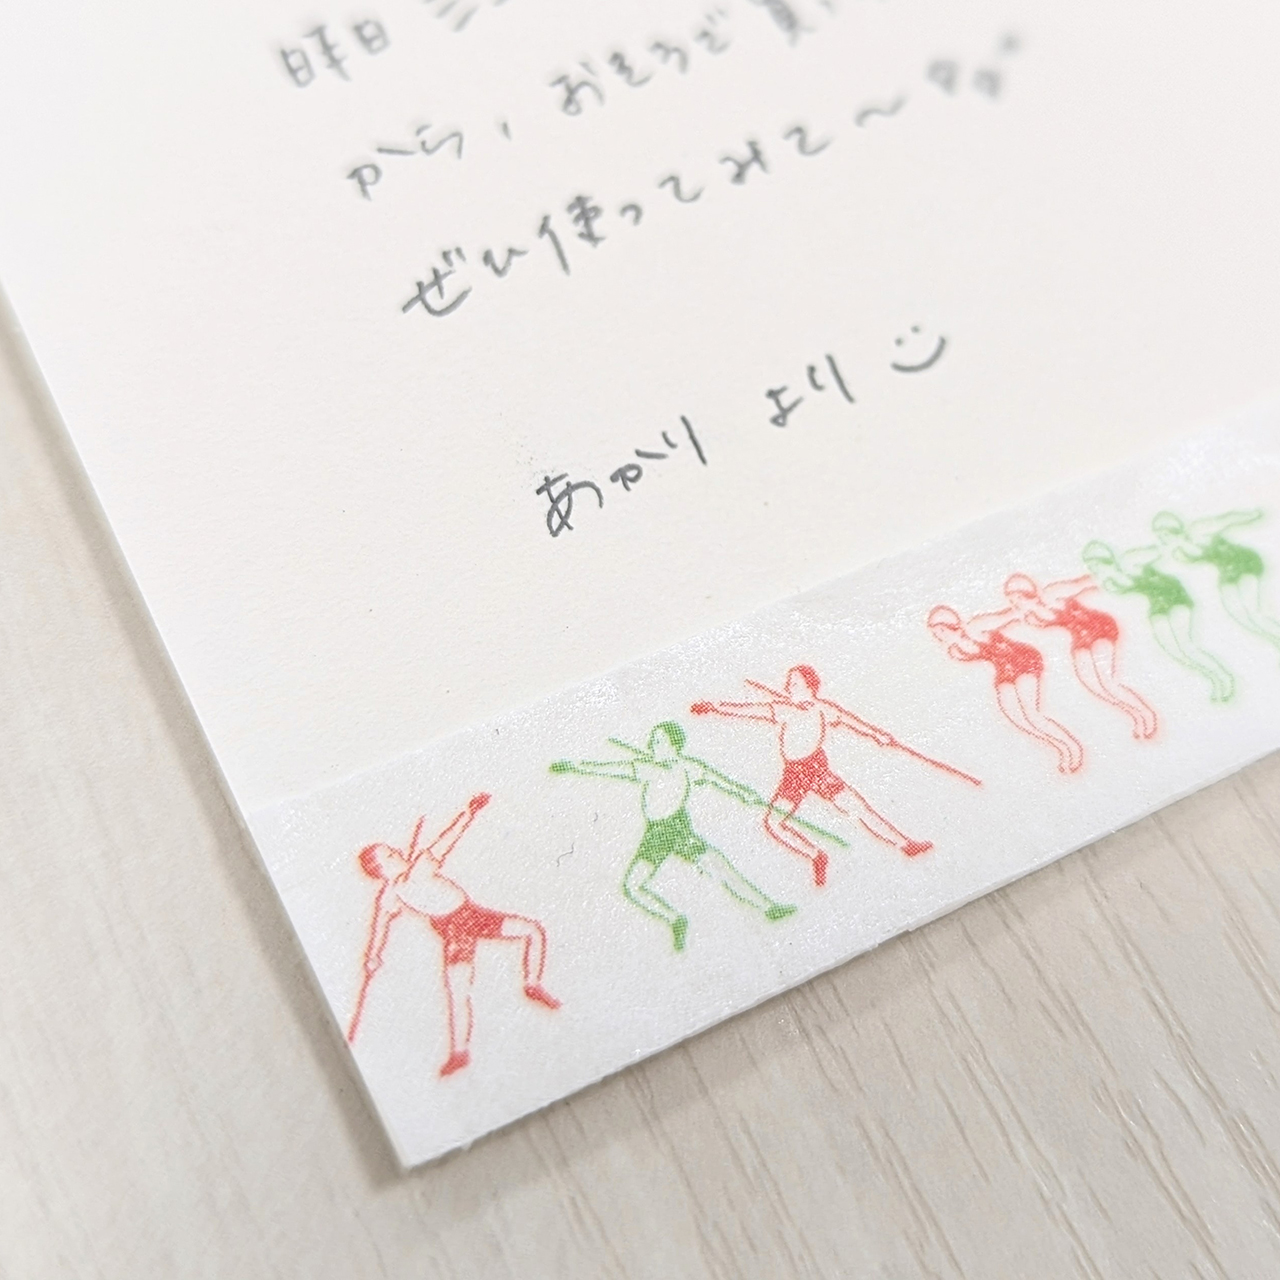 昨日
から、おそろで買
ぜひ使ってみて〜
あかり より